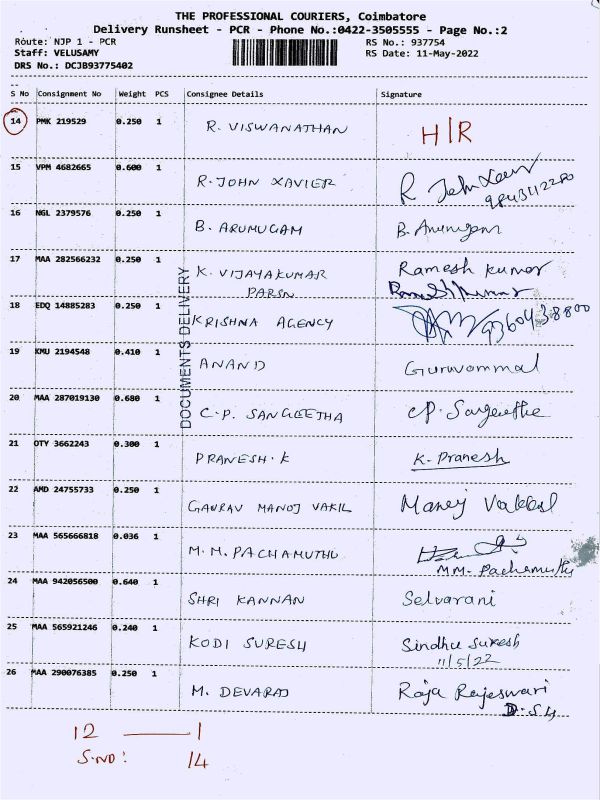 THE PROFESSIONAL COURIERS, Coimbatore
Delivery Runsheet - PCR - Phone No.:0422-3505555 - Page No.:2
Route: NJP 1 - PCR RS No.: 937754
Staff: VELUSAMY RS Date: 11-May-2022
DRS No.: DCJB93775402
S No Consignment No Weight PCS Consignee Details Signature
14 PMK 219529 0.250 1 R. VISWANATHAN H|R
15 VPM 4682665 0.600 1 R. JOHN XAVIER R John Xavier
16 NGL 2379576 0.250 1 B. ARUMUGAM B. Arumugam
17 MAA 282566232 0.250 1 K. VIJAYAKUMAR Ramesh Kumar
PARSN Ramesh Kumar
18 EDQ 14885283 0.250 1 KRISHNA AGENCY 9360438800
19 KMU 2194548 0.410 1 ANAND Guruvammal
20 MAA 287019130 0.680 1 C.P. SANGEETHA CP. Sangeetha
21 OTY 3662243 0.300 1 PRANESH.K K. Pranesh
22 AMD 24755733 0.250 1 GAURAV MANOJ VAKIL Manoj
23 MAA 565666818 0.036 1 M.M. PACHAMUTHU
MM. Pachamuthu
24 MAA 942056500 0.640 1 SHRI KANNAN Selvarani
25 MAA 565921246 0.240 1 KODI SURESH Sindhu Suresh
11/5/22
26 MAA 290076385 0.250 1 M. DEVARAJ Raja Rajeswari
DOCUMENTS DELIVERY
12 — 1
S.NO: 14